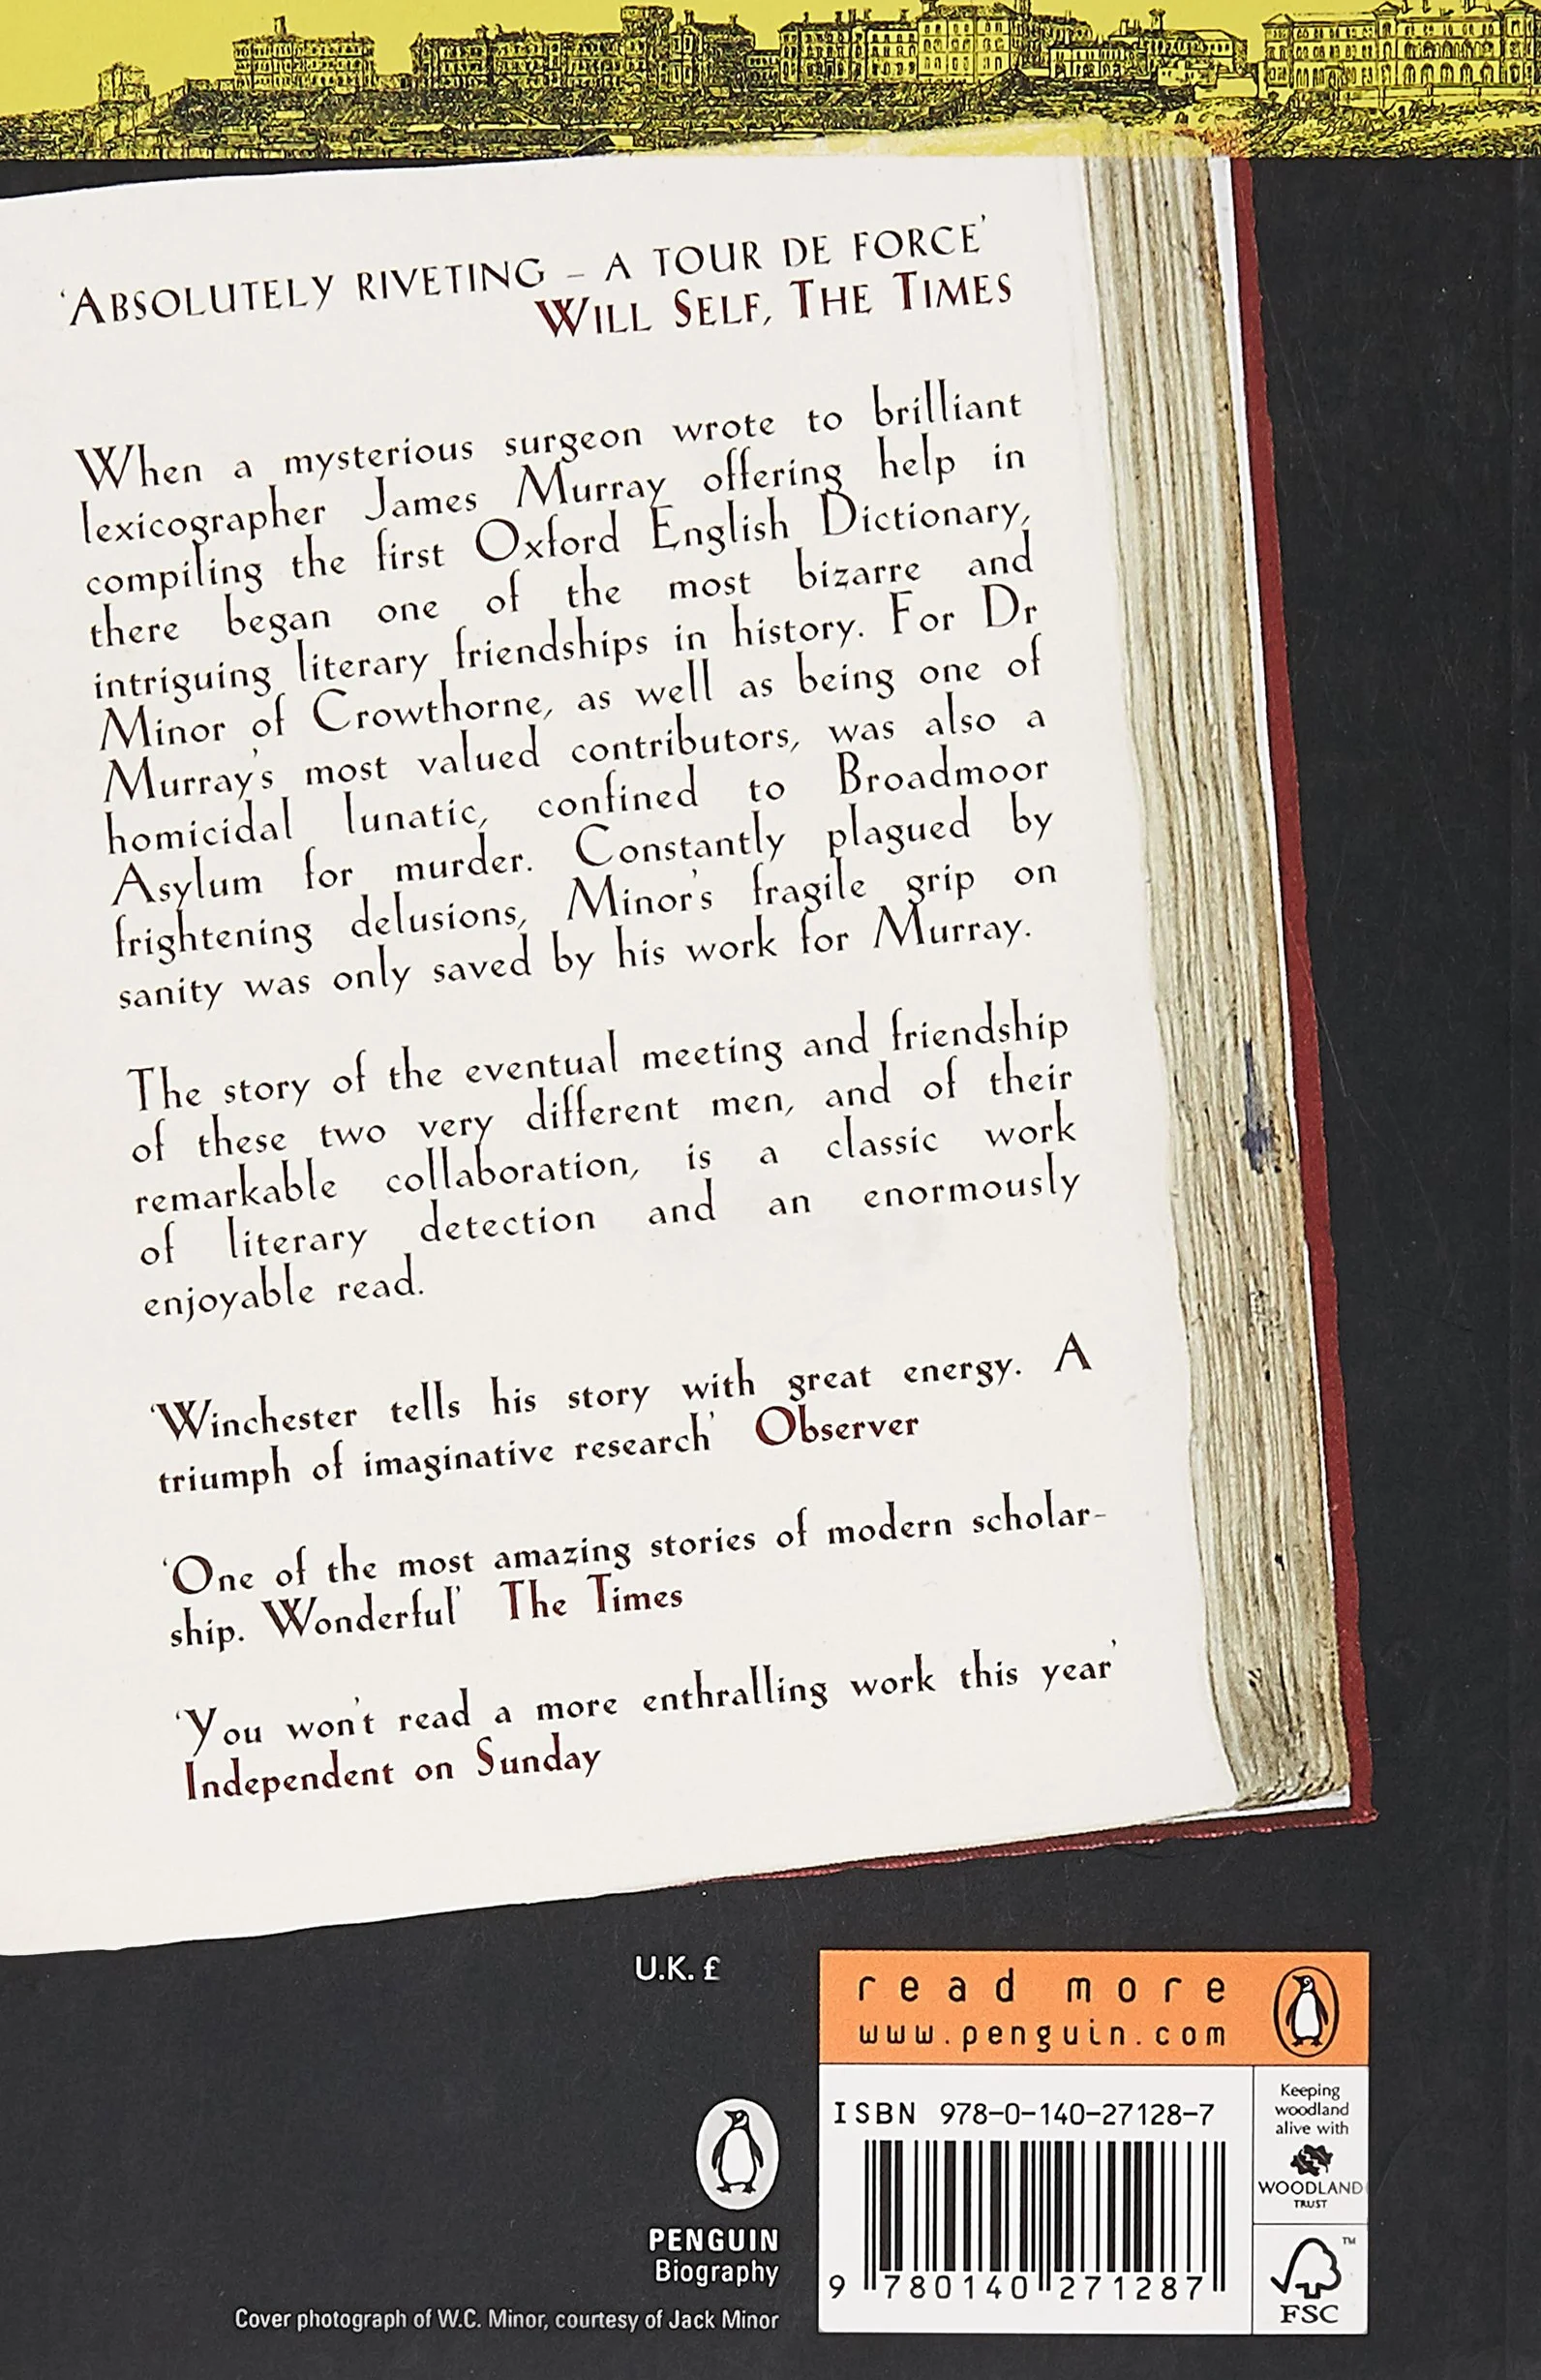 ‘ABSOLUTELY RIVETING – A TOUR DE FORCE’
WILL SELF, THE TIMES
When a mysterious surgeon wrote to brilliant
lexicographer James Murray offering help in
compiling the first Oxford English Dictionary,
there began one of the most bizarre and
intriguing literary friendships in history. For Dr
Minor of Crowthorne, as well as being one of
Murray's most valued contributors, was also a
homicidal lunatic, confined to Broadmoor
Asylum for murder. Constantly plagued by
frightening delusions, Minor's fragile grip on
sanity was only saved by his work for Murray.
The story of the eventual meeting and friendship
of these two very different men, and of their
remarkable collaboration, is a classic work
of literary detection and an enormously
enjoyable read.
‘Winchester tells his story with great energy. A
triumph of imaginative research’ Observer
‘One of the most amazing stories of modern scholar-
ship. Wonderful’ The Times
‘You won't read a more enthralling work this year’
Independent on Sunday
U.K. £
read more
www.penguin.com
ISBN 978-0-140-27128-7
9 780140 271287
Keeping
woodland
alive with
WOODLAND
TRUST
TM
FSC
PENGUIN
Biography
Cover photograph of W.C. Minor, courtesy of Jack Minor